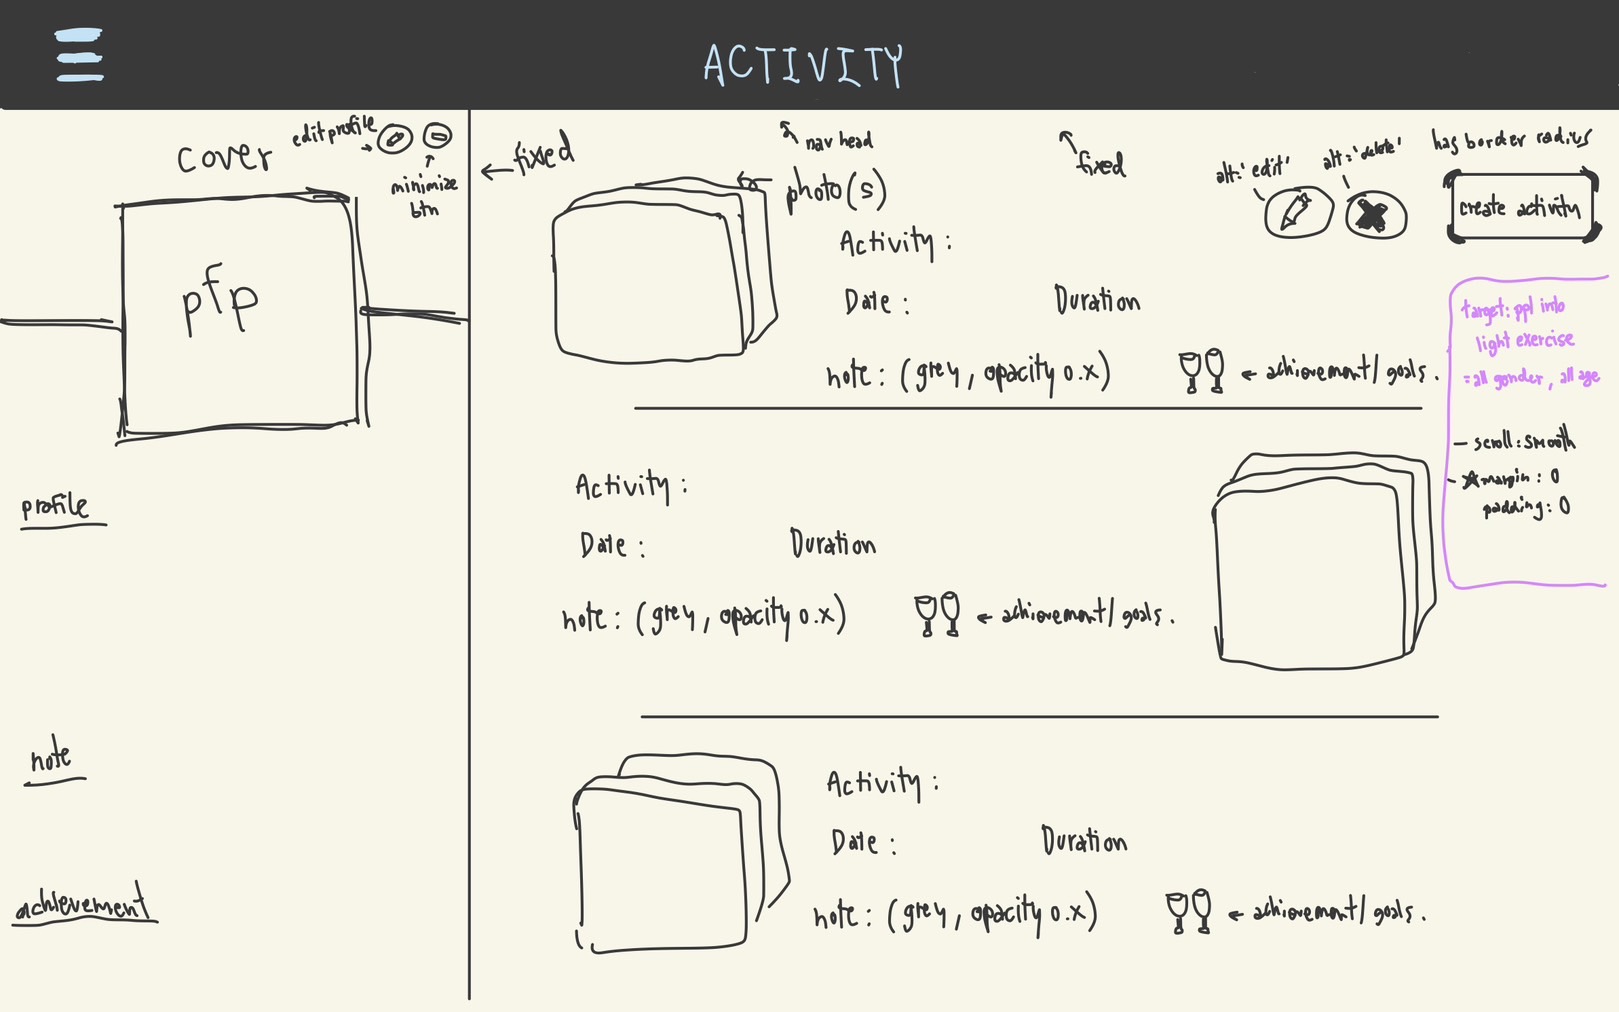 ACTIVITY
cover
edit profile
minimize
btn
pfp
profile
note
achievement
fixed
nav head
fixed
photo(s)
alt:'edit'
alt:'delete'
has border radius
create activity
Activity :
Date :
Duration
note : (grey, opacity 0.x)
achievement/goals.
target: ppl into
light exercise
= all gender, all age
- scroll: smooth
- * margin: 0
padding: 0
Activity :
Date :
Duration
note : (grey, opacity 0.x)
achievement/goals.
Activity :
Date :
Duration
note : (grey, opacity 0.x)
achievement/goals.